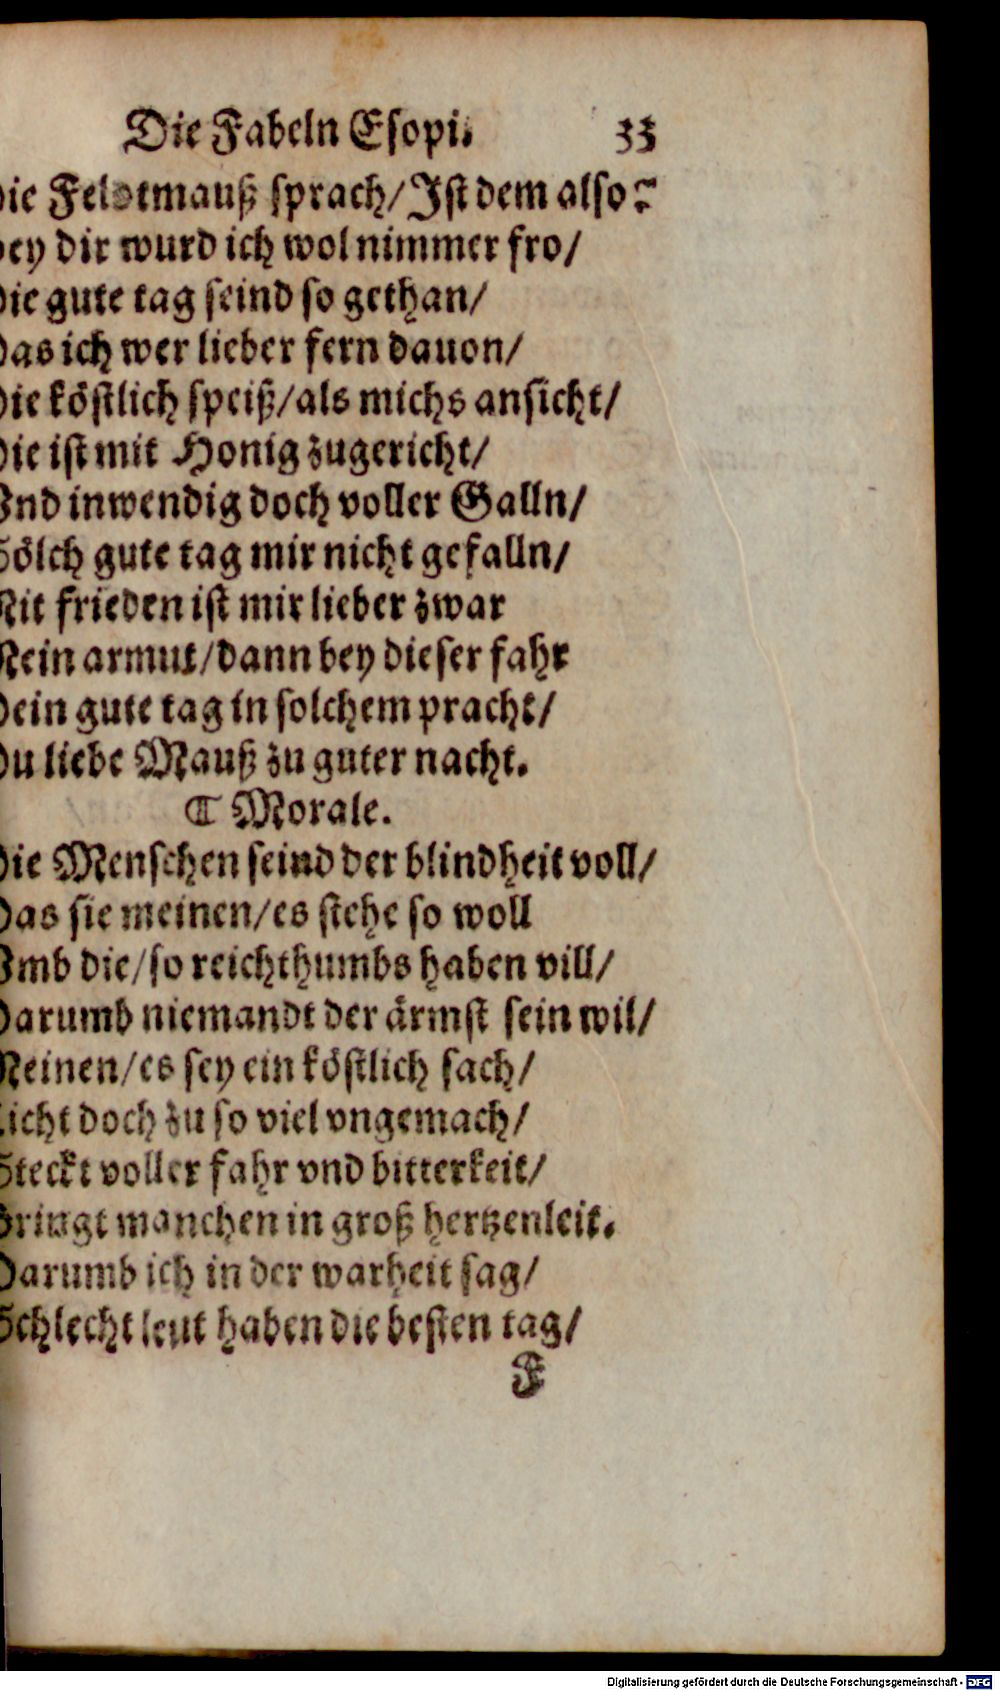 Die Fabeln Esopi. 33
Die Feldtmauß sprach/Ist dem also?
bey dir wurd ich wol nimmer fro/
Die gute tag seind so gethan/
Das ich wer lieber fern dauon/
Die köstlich speiß/als michs ansicht/
Die ist mit Honig zugericht/
Vnd inwendig doch voller Galln/
Sölch gute tag mir nicht gefalln/
Mit frieden ist mir lieber zwar
Mein armut/dann bey dieser fahr
Dein gute tag in solchem pracht/
Du liebe Mauß zu guter nacht.
⸿ Morale.
Die Menschen seind der blindheit voll/
Das sie meinen/es stehe so woll
Vmb die/so reichthumbs haben vill/
Darumb niemandt der ärmst sein wil/
Meinen/es sey ein köstlich sach/
Zicht doch zu so viel vngemach/
Steckt voller fahr vnd bitterkeit/
Bringt manchen in groß hertzenleit.
Darumb ich in der warheit sag/
Schlecht leut haben die besten tag/
F
Digitalisierung gefördert durch die Deutsche Forschungsgemeinschaft - DFG